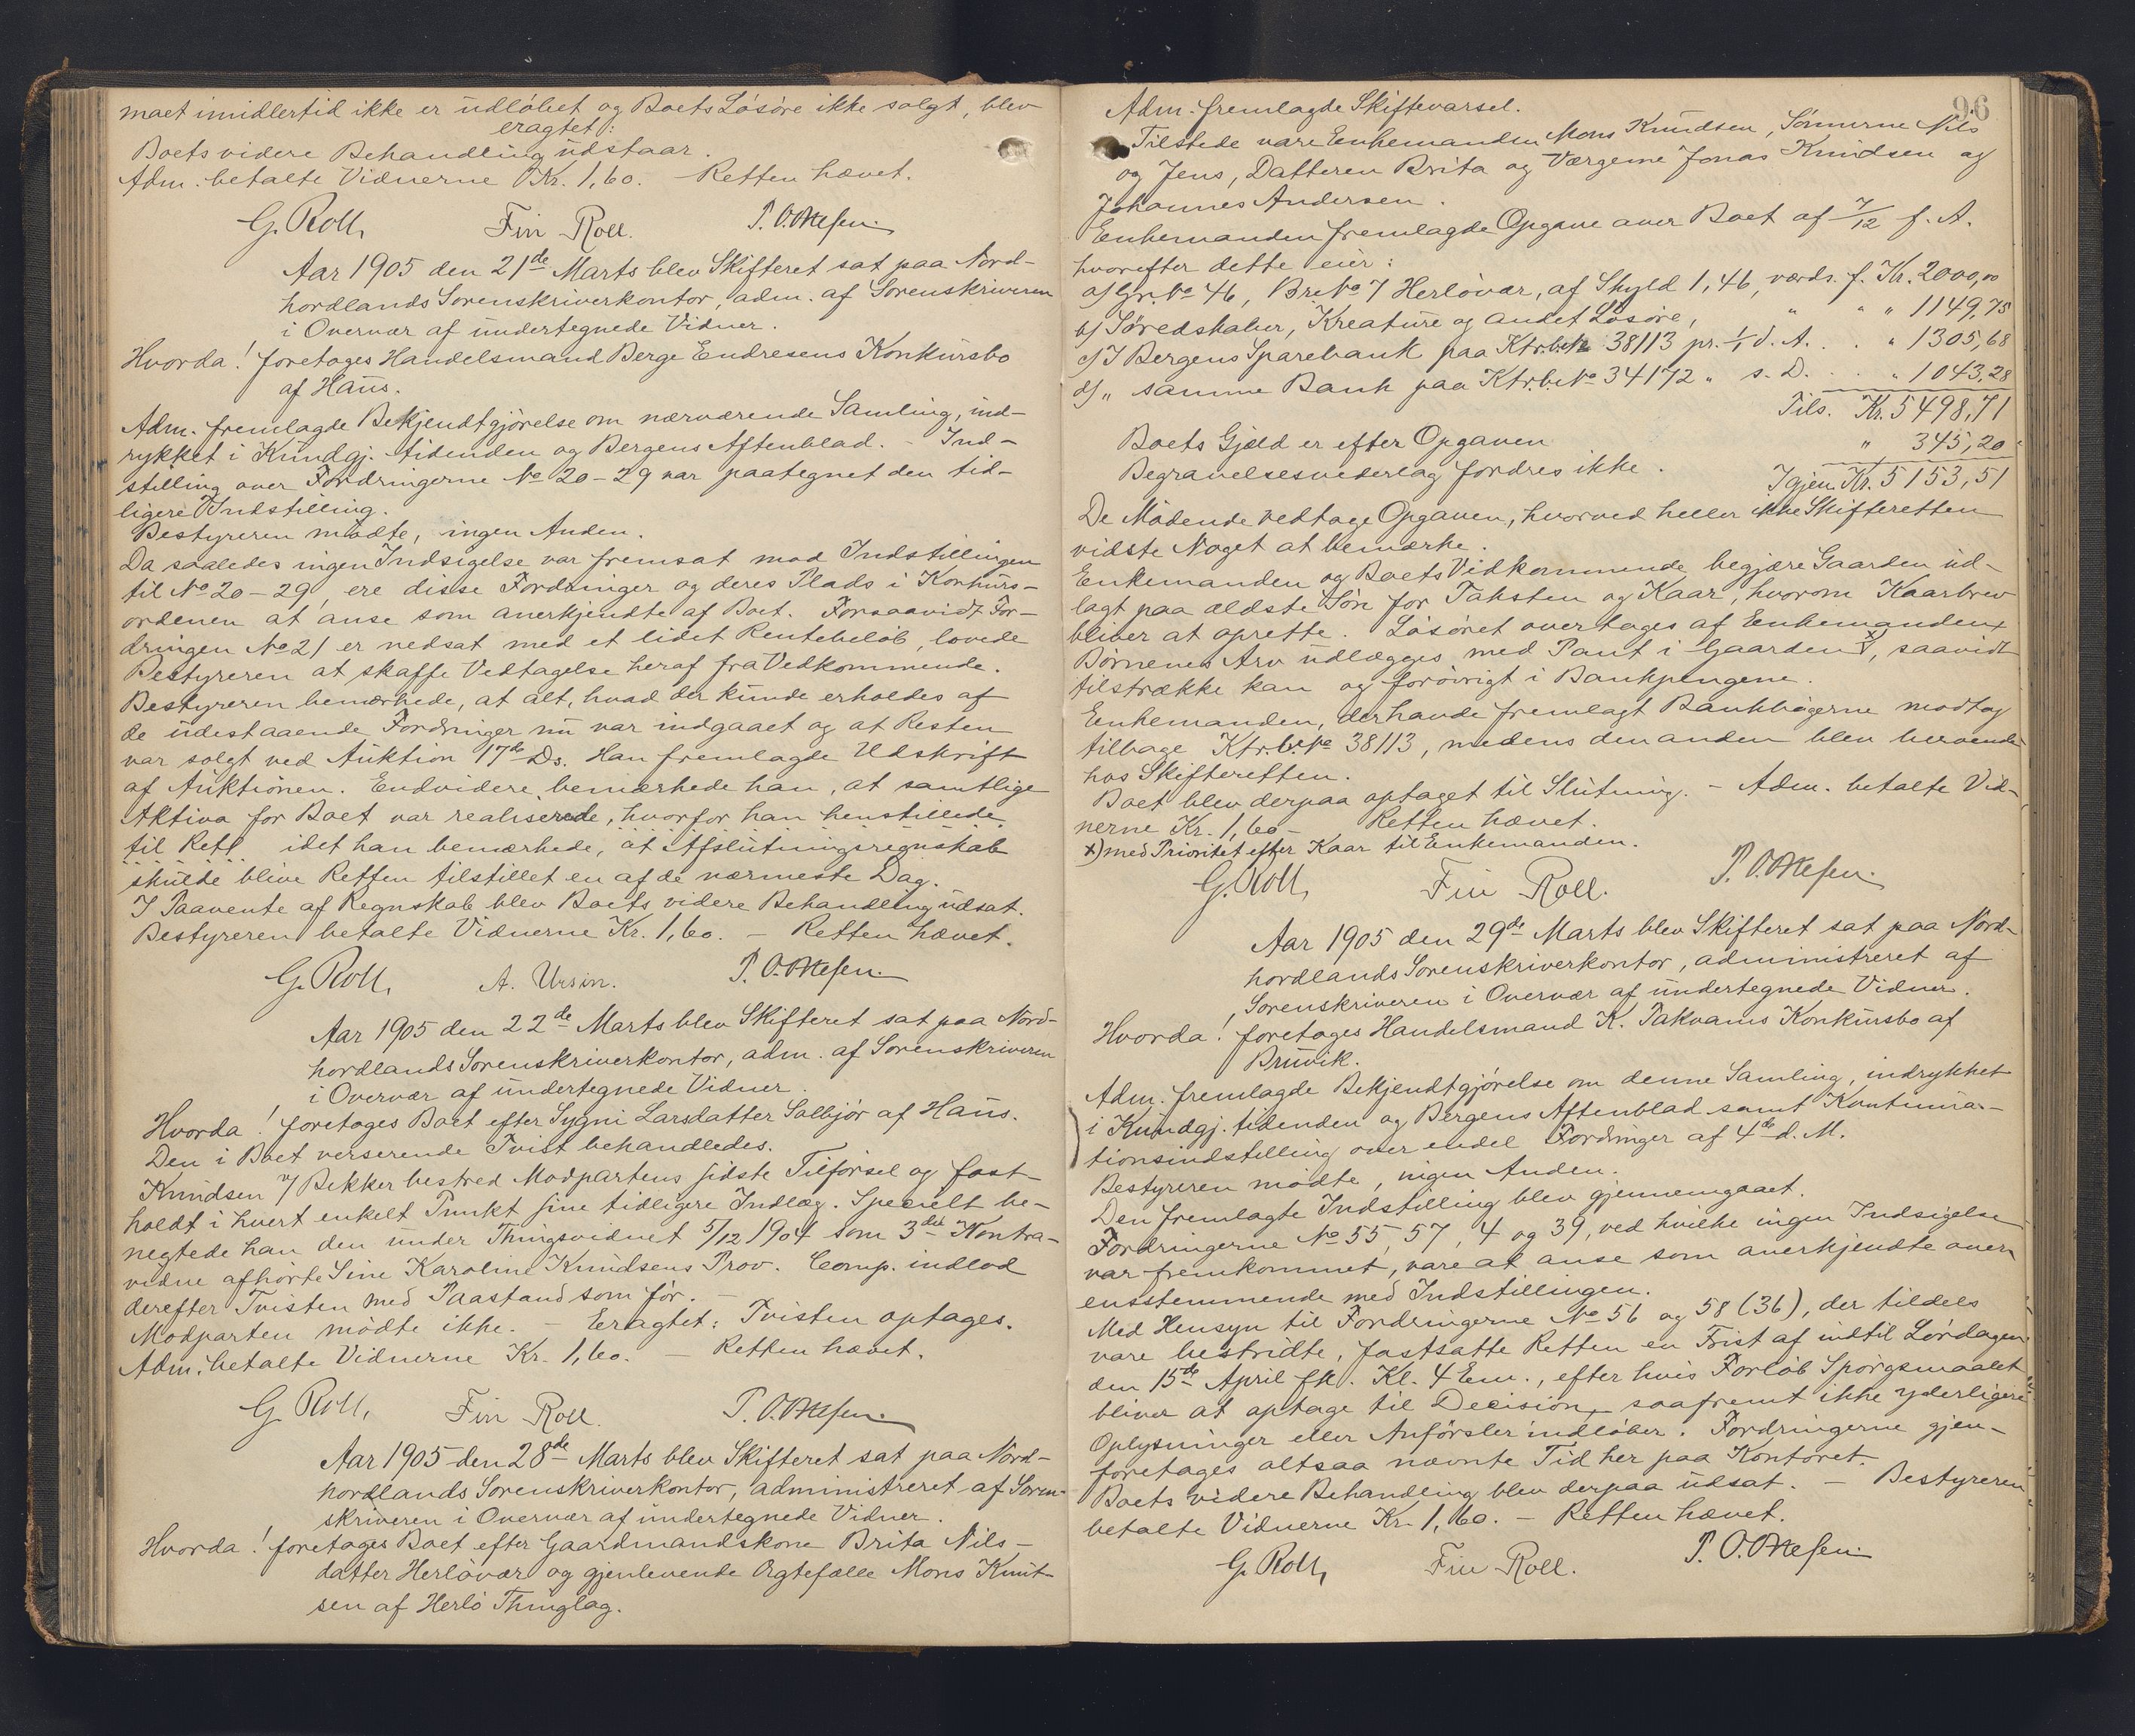 maet imidlertid ikke er udløbet og Boets Løsøre ikke solgt, blev
eragtet:
Boets videre Behandling udstaar.
Adm. betalte Vidnerne Kr. 1,60. – Retten hævet.
G. Roll, Finn Roll. P. O. Ottesen.
Aar 1905 den 21de Marts blev Skifteret sat paa Nord-
hordlands Sorenskriverkontor, adm. af Sorenskriveren
i Overvær af undertegnede Vidner.
Hvorda! foretoges Handelsmand Berge Endresens Konkursbo
af Haus.
Adm. fremlagde Bekjendtgjørelse om nærværende Samling, ind-
rykket i Kundgj. tidenden og Bergens Aftenblad. – Ind-
stilling over Fordringerne No 20-29 var paategnet den tid-
ligere Indstilling.
Bestyreren mødte, ingen Anden.
Da saaledes ingen Indsigelse var fremsat mod Indstillingen
til No 20-29, ere disse Fordringer og deres Plads i Konkurs-
ordenen at anse som anerkjendte af Boet. Forsaavidt For-
dringen No 21 er nedsat med et lidet Rentebeløb, lovede
Bestyreren at skaffe Vedtagelse heraf fra Vedkommende.
Bestyreren bemærkede, at alt, hvad der kunde erholdes af
de udestaaende Fordringer nu var indgaaet og at Resten
var solgt ved Auktion 17de Ds. Han fremlagde Udskrift
af Auktionen. Endvidere bemærkede han, at samtlige
Aktiva for Boet var realiserede, hvorfor han henstillede
til Rett idet han bemærkede, at Afslutningsregnskab
skulde blive Retten tilstillet en af de nærmeste Dag.
I Paavente af Regnskab blev Boets videre Behandling udsat.
Bestyreren betalte Vidnerne Kr. 1,60. – Retten hævet.
G. Roll, A. Ursin. P. O. Ottesen.
Aar 1905 den 22de Marts blev Skifteret sat paa Nord-
hordlands Sorenskriverkontor, adm. af Sorenskriveren
i Overvær af undertegnede Vidner.
Hvorda! foretoges Boet efter Sygni Larsdatter Solbjør af Haus.
Den i Boet verserende Tvist behandledes.
Knudsen v/ Bekker bestred Modpartens sidste Tilførsel og fast-
holdt i hvert enkelt Punkt sine tidligere Indlæg. Specielt be-
negtede han den under Thingsvidnet 5/12 1904 som 3die Kontra-
vidne afhørte Sine Karoline Knudsens Prov. Comp. indlod
derefter Tvisten med Paastand som før. –
Modparten mødte ikke. – Eragtet: Tvisten optages.
Adm. betalte Vidnerne Kr. 1,60. – Retten hævet.
G. Roll, Finn Roll. P. O. Ottesen.
Aar 1905 den 28de Marts blev Skifteret sat paa Nord-
hordlands Sorenskriverkontor, administreret af Soren-
skriveren i Overvær af undertegnede Vidner.
Hvorda! foretoges Boet efter Gaardmandskone Brita Nils-
datter Herløvær og gjenlevende Ægtefælle Mons Knut-
sen af Herlø Thinglag.
96
Adm. fremlagde Skiftevarsel.
Tilstede vare Enkemanden Mons Knudsen, Sønnerne Nils
og Jens, Datteren Brita og Værgerne Jonas Knudsen og
Johannes Andersen.
Enkemanden fremlagde Opgave over Boet af 7/12 f. A.
hvorefter dette eier:
a) Gr. No 46, Br. No 7 Herløvær, af Skyld 1,46, værds. f. Kr. 2000,00
b) Søredskaber, Kreature og andet Løsøre, " " " 1149,75
c) I Bergens Sparebank paa Ktr.b. No 38113 pr. 1/1 d. A. . . " 1305,68
d) " samme Bank paa Ktr.b. No 34172 " s. D. . . " 1043,28
Tils. Kr. 5498,71
Boets Gjæld er efter Opgaven " 345,20
Begravelsesvederlag fordres ikke. Igjen Kr. 5153,51
De Mødende vedtage Opgaven, hvorved heller ikke Skifteretten
vidste Noget at bemærke.
Enkemanden og Boets Vidkommende begjære Gaarden ud-
lagt paa ældste Søn for Taksten og Kaar, hvorom Kaarbrev
bliver at oprette. Løsøret overtages af Enkemanden,
Børnenes Arv udlægges med Pant i Gaarden x), saavidt
tilstrække kan og forøvrigt i Bankpengene.
Enkemanden, der havde fremlagt Bankbøgerne modtog
tilbage Ktr.b. No 38113, medens den anden blev beroende
hos Skifteretten.
Boet blev derpaa optaget til Slutning. – Adm. betalte Vid-
nerne Kr. 1,60 – Retten hævet.
x) med Prioritet efter Kaar til Enkemanden.
G. Roll, Finn Roll. P. O. Ottesen.
Aar 1905 den 29de Marts blev Skifteret sat paa Nord-
hordlands Sorenskriverkontor, administreret af
Sorenskriveren i Overvær af undertegnede Vidner.
Hvorda! foretoges Handelsmand K. Takvams Konkursbo af
Bruvik.
Adm. fremlagde Bekjendtgjørelse om denne Samling, indrykket
i Kundgj. tidenden og Bergens Aftenblad samt Kontinua-
tionsindstilling over endel Fordringer af 4de d. M.
Bestyreren mødte, ingen Anden.
Den fremlagte Indstilling blev gjennemgaaet.
Fordringerne No 55, 57, 4 og 39, ved hvilke ingen Indsigelse
var fremkommet, vare at anse som anerkjendte over-
ensstemmende med Indstillingen.
Med Hensyn til Fordringerne No 56 og 58 (36), der tildels
vare bestridte, fastsatte Retten en Frist af indtil Lørdagen
den 15de April fk. Kl. 4 Em., efter hvis Forløb Spørgsmaalet
bliver at optage til Decision, saafremt ikke yderligere
Oplysninger eller Anførsler indløber. Fordringerne gjen-
foretages altsaa nævnte Tid her paa Kontoret.
Boets videre Behandling blev derpaa udsat. – Bestyreren
betalte Vidnerne Kr. 1,60. – Retten hævet.
G. Roll, Finn Roll. P. O. Ottesen.